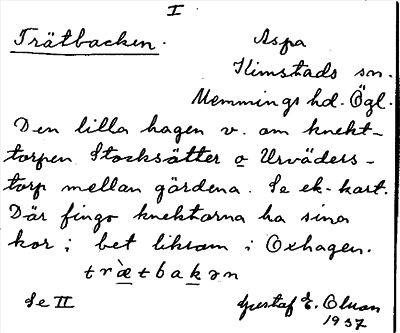 I
Trätbacken.
Aspa
Kimstads sn.
Memmings hd. Ögl.
Den lilla hagen v. om knekt-
torpen Stocksätter o Urväders-
torp mellan gärdena. Se ek-kart.
Där fingo knektarna ha sina
kor; bet liksom i Oxhagen.
træ̀tbakən
Se II
Gustaf E. Olson
1937